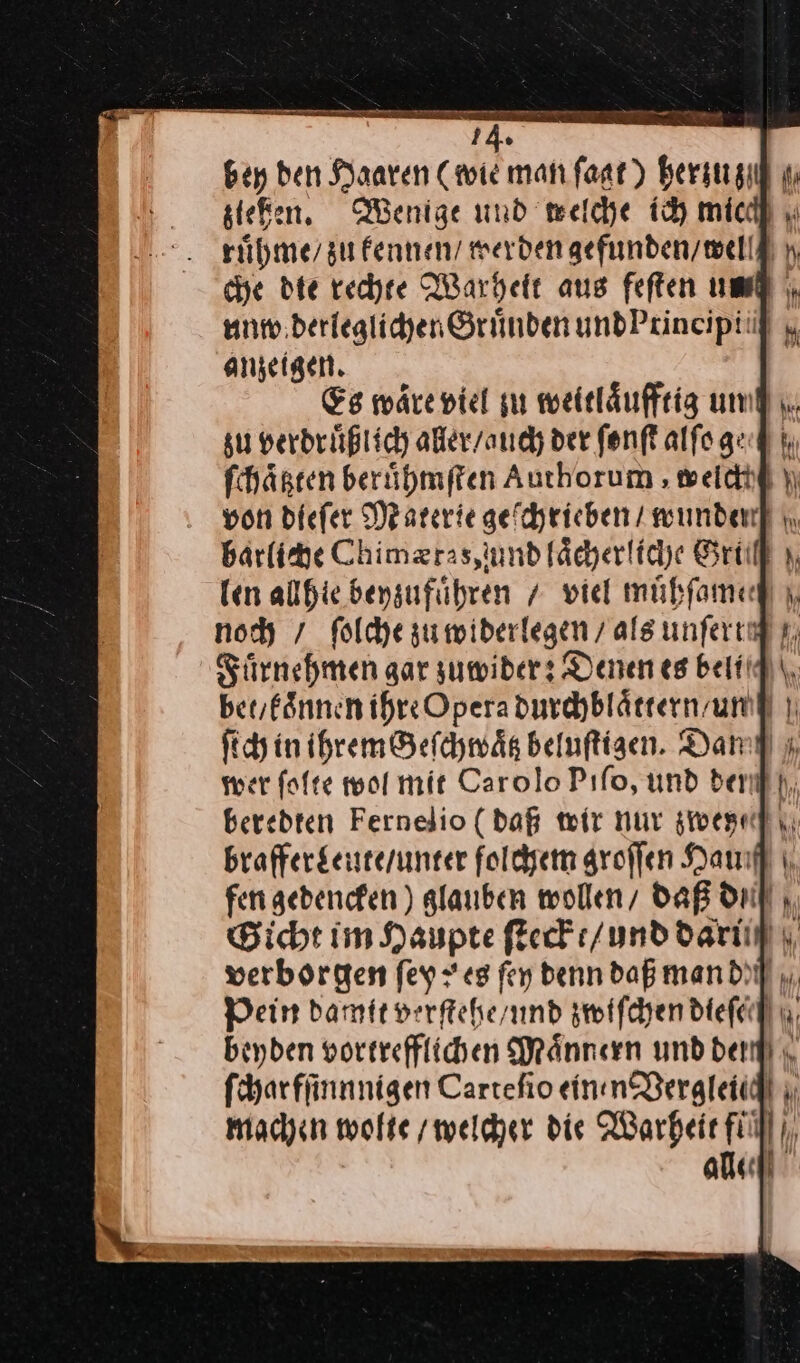 14.
bey den Haaren (wie man ſagt) herzu
ziehen. Wenige und welche ich
ruͤhme/zu kennen/ werden gefunden/wel
che die rechte Warheit aus feſten
unw derleglichen Gruͤnden und Principi
anzeigen.
Es waͤre viel zu weitlaͤufftig
zu verdruͤßlich aller/auch der ſonſt alſo ge
ſchaͤtzten beruͤhmſten Authorum, welch
von dieſer Materie geſchrieben/ wunder
barliche Chimæras, und laͤcherliche Gril
len allhie beyzufuͤhren / viel muͤhſame
noch / ſolche zu widerlegen / als unſer
Fuͤrnehmen gar zuwider: Denen es belie
bet/koͤnnen ihre Opera durchblaͤttern/
ſich in ihrem Geſchwaͤtz beluſtigen. Dan
wer ſolte wol mit Carolo Piſo, und
beredten Fernelio (daß wir nur zweye
braffer Leute/unter ſolchem groſſen Hau
fen gedencken) glauben wollen/ daß
Gicht im Haupte ſtecke/und dari
verborgen ſey? es ſey denn daß man
Pein damit verſtehe/und zwiſchen dieſe
beyden vortrefflichen Maͤnnern und
ſcharfſinnnigen Carteſio einen Verglei
machen wolte / welcher die Warheit
alle